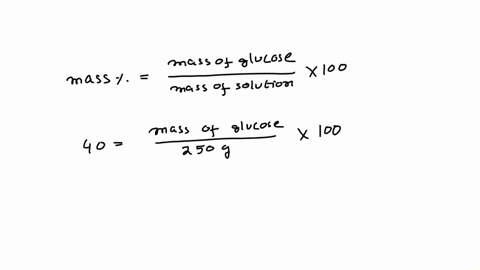 mass %. = mass of glucose / mass of solution × 100
40 = mass of glucose / 250 g × 100